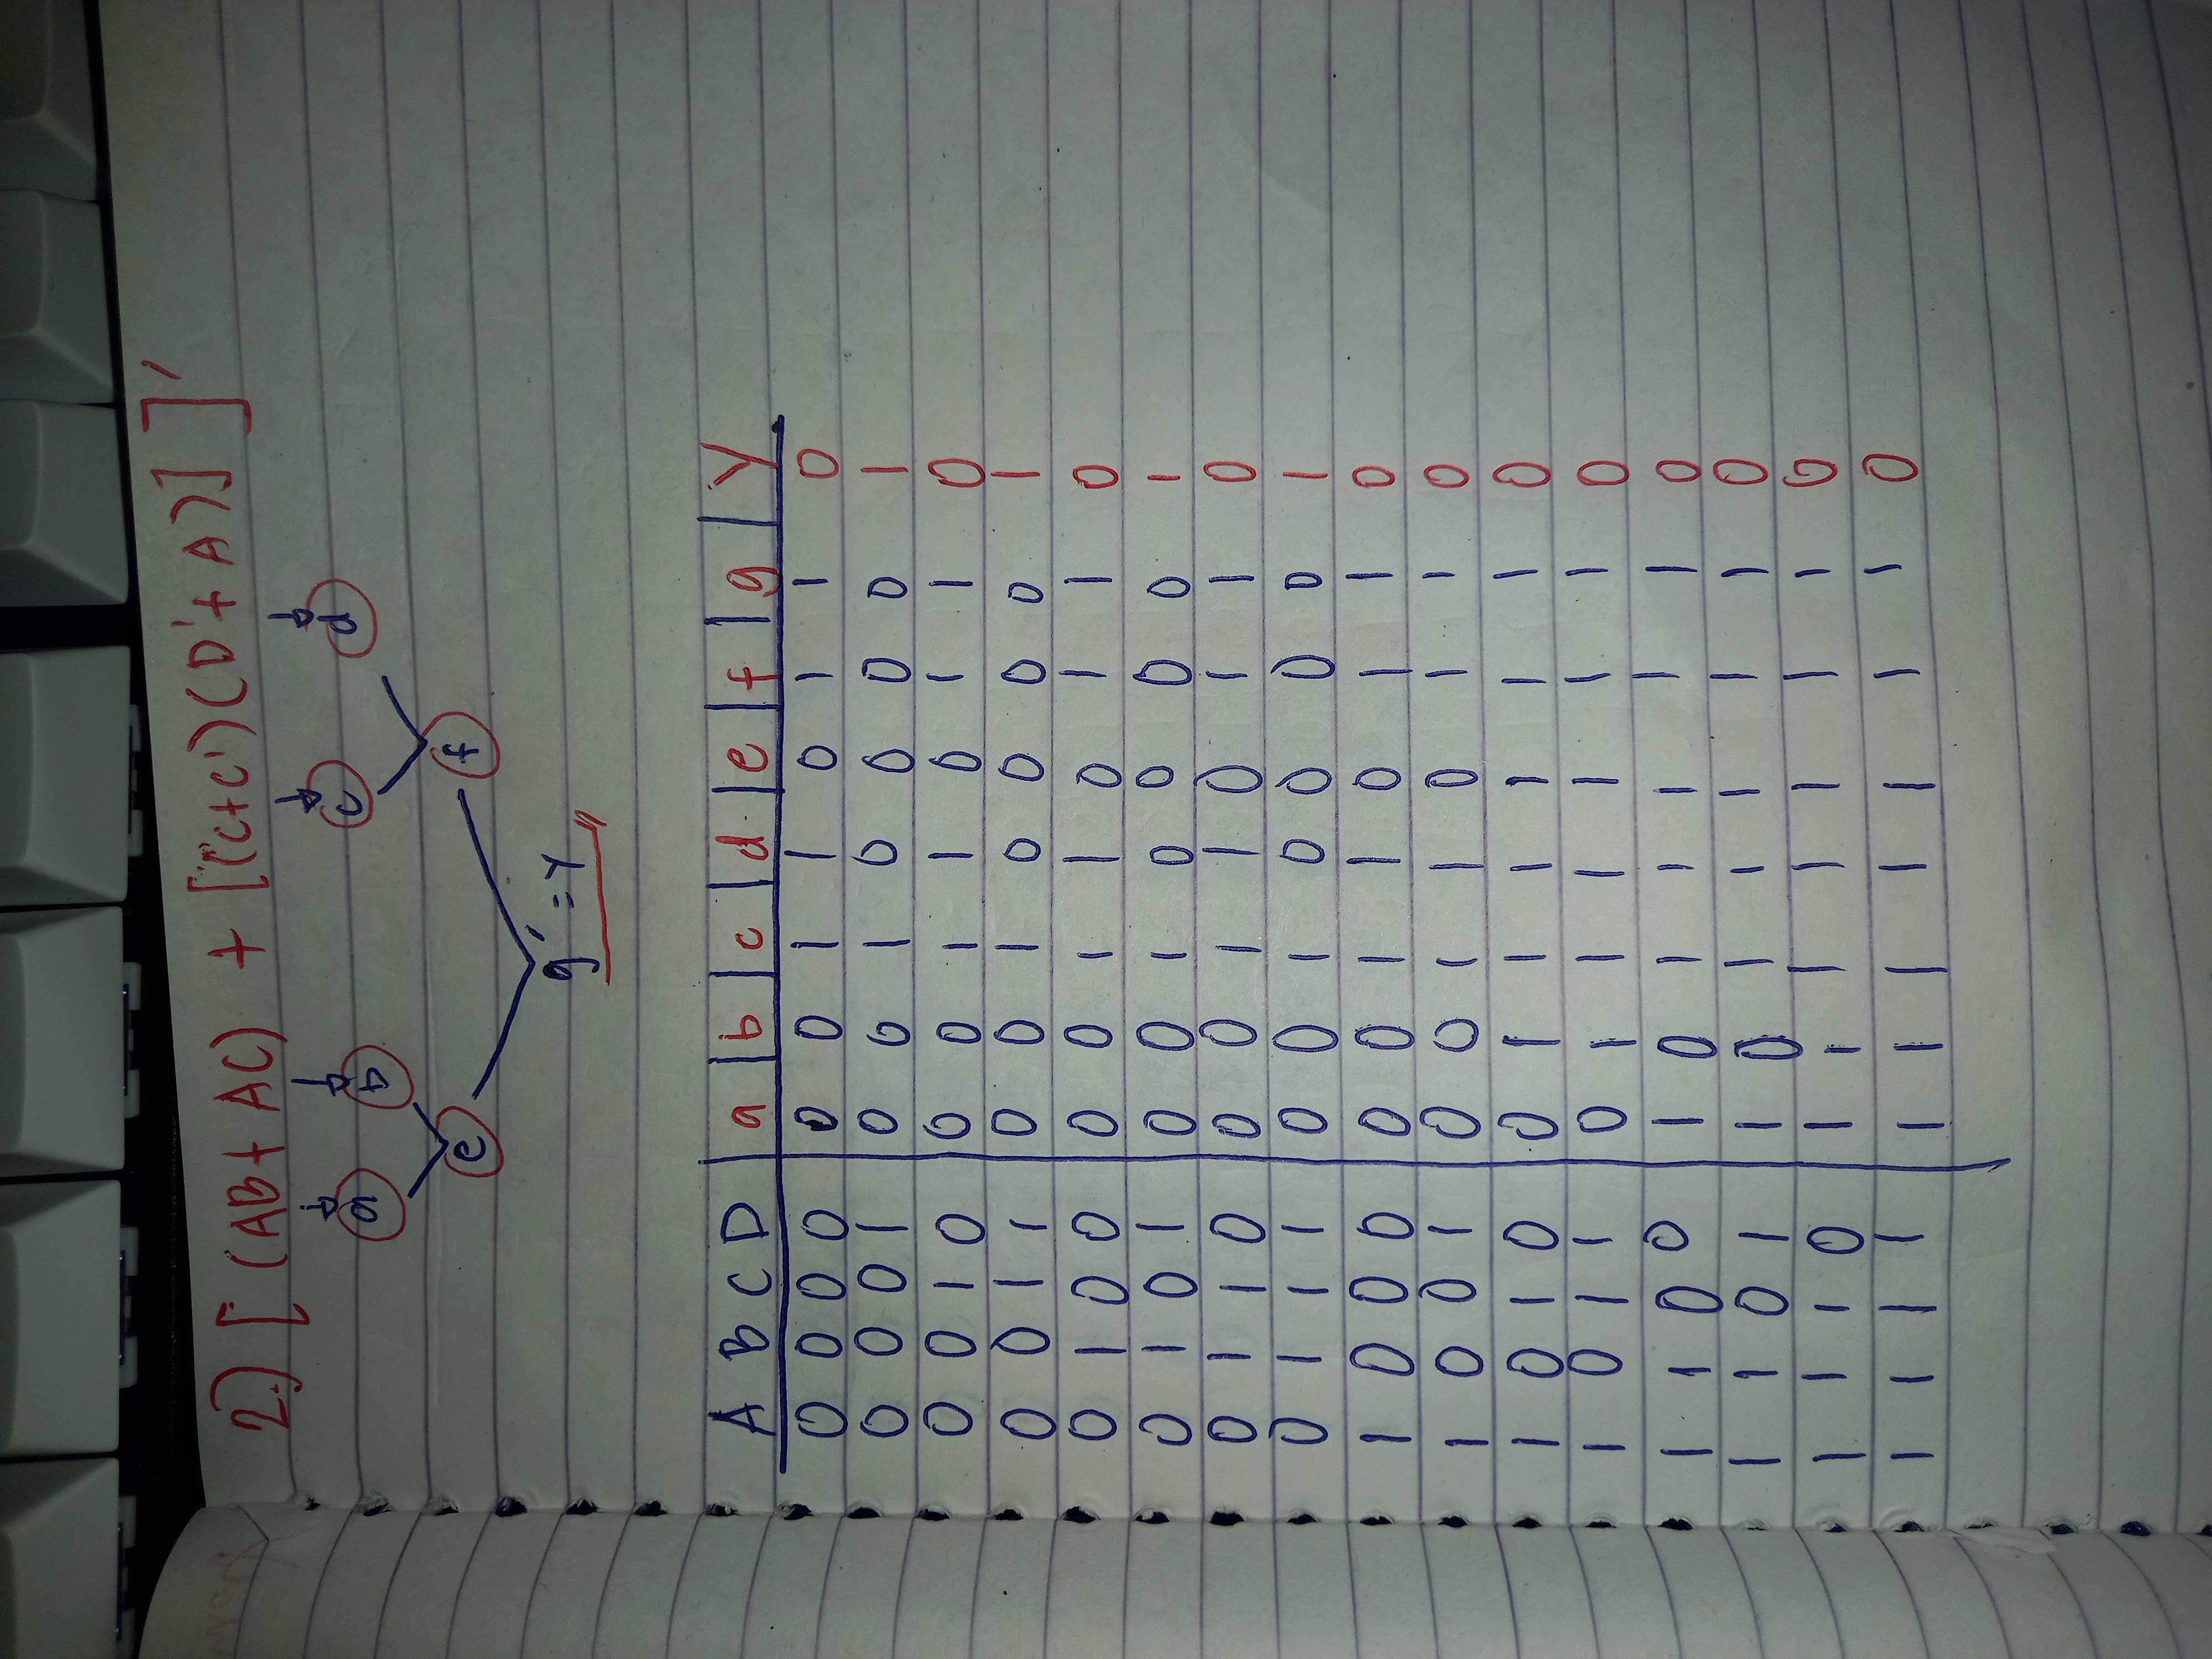 2.) [ (AB + AC) + [(C+C')(D'+A)] ]'
a b c d
e f
g' = Y
A B C D a b c d e f g Y
0 0 0 0 0 0 1 1 0 1 1 0
0 0 0 1 0 0 1 0 0 0 0 1
0 0 1 0 0 0 1 1 0 1 1 0
0 0 1 1 0 0 1 0 0 0 0 1
0 1 0 0 0 0 1 1 0 1 1 0
0 1 0 1 0 0 1 0 0 0 0 1
0 1 1 0 0 0 1 1 0 1 1 0
0 1 1 1 0 0 1 0 0 0 0 1
1 0 0 0 0 0 1 1 0 1 1 0
1 0 0 1 0 0 1 1 0 1 1 0
1 0 1 0 0 1 1 1 1 1 1 0
1 0 1 1 0 1 1 1 1 1 1 0
1 1 0 0 1 0 1 1 1 1 1 0
1 1 0 1 1 0 1 1 1 1 1 0
1 1 1 0 1 1 1 1 1 1 1 0
1 1 1 1 1 1 1 1 1 1 1 0